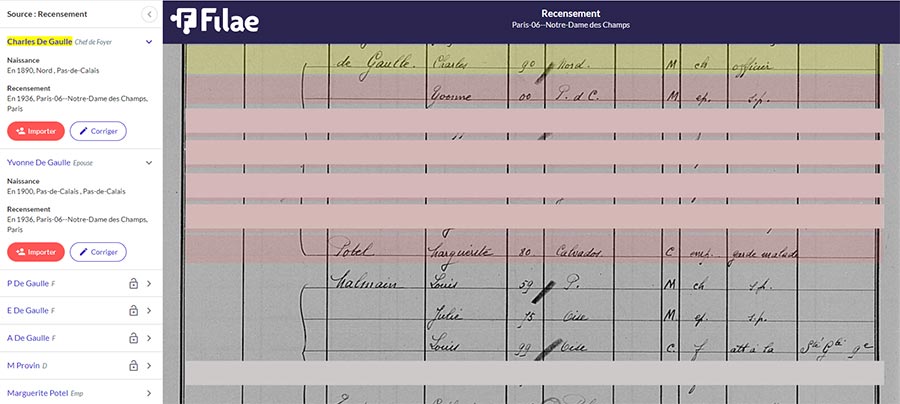 Source : Recensement
Charles De Gaulle Chef de Foyer
Naissance
En 1890, Nord , Pas-de-Calais
Recensement
En 1936, Paris-06--Notre-Dame des Champs,
Paris
Importer
Corriger
Yvonne De Gaulle Epouse
Naissance
En 1900, Pas-de-Calais , Pas-de-Calais
Recensement
En 1936, Paris-06--Notre-Dame des Champs,
Paris
Importer
Corriger
P De Gaulle F
E De Gaulle F
A De Gaulle F
M Provin D
Marguerite Potel Emp
Filae
Recensement
Paris-06--Notre-Dame des Champs
de Gaulle Charles 90 Nord. M ch officier
Yvonne 00 P. d C. M ep. s.p.
Potel Marguerite 80 Calvados C emp. garde malade
Malmain Louis 59 P. M ch s.p.
Julie 75 Oise M. ep. s.p.
Louis 99 Oise C. f att à la Sté Gle